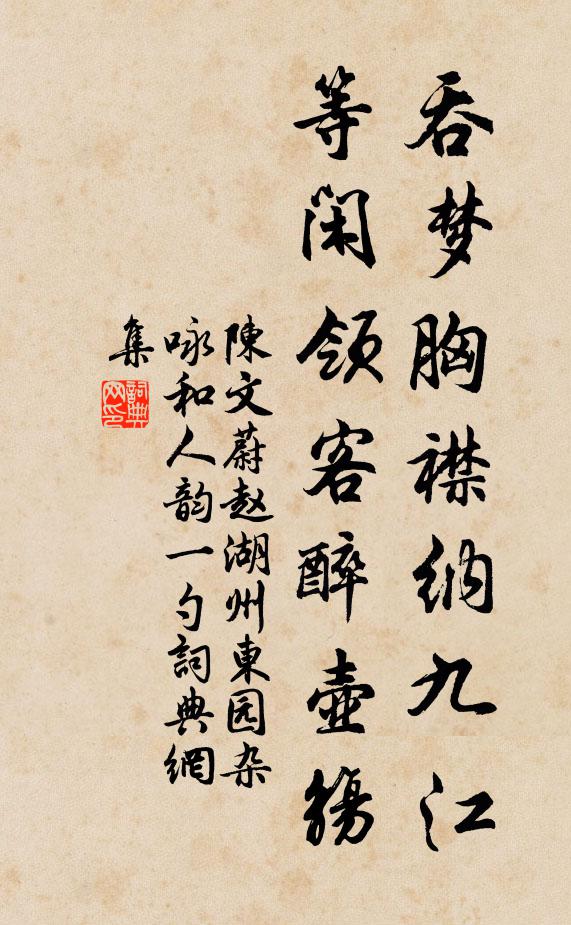 吞梦胸襟纳九江
等闲领客醉壶觞
陳文蔚赵湖州東园杂
咏和人韵一勺詞典網
集
詞典
网印